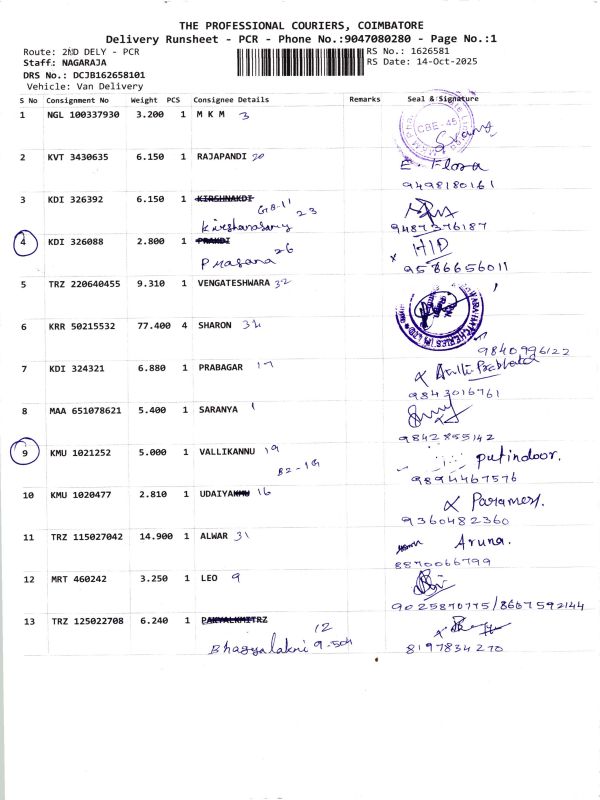 THE PROFESSIONAL COURIERS, COIMBATORE
Delivery Runsheet - PCR - Phone No.:9047080280 - Page No.:1
Route: 2ND DELY - PCR RS No.: 1626581
Staff: NAGARAJA RS Date: 14-Oct-2025
DRS No.: DCJB162658101
Vehicle: Van Delivery
S No Consignment No Weight PCS Consignee Details Remarks Seal & Signature
1 NGL 100337930 3.200 1 M K M 3 CBE-45
2 KVT 3430635 6.150 1 RAJAPANDI 20 E. Flora
9498180161
3 KDI 326392 6.150 1 KIRSHNAKDI
G8-11
23
9487376187
4 KDI 326088 2.800 1 PRAKDI 26 x HID
Prasana 9566656011
5 TRZ 220640455 9.310 1 VENGATESHWARA 32
6 KRR 50215532 77.400 4 SHARON 32
9840996122
7 KDI 324321 6.880 1 PRABAGAR 17
9843016761
8 MAA 651078621 5.400 1 SARANYA 1
9842855142
9 KMU 1021252 5.000 1 VALLIKANNU 19 putindoor.
B2-19 9894467576
10 KMU 1020477 2.810 1 UDAIYAKMU 16
9360482360
11 TRZ 115027042 14.900 1 ALWAR 31 Aruna.
8870066799
12 MRT 460242 3.250 1 LEO 9
9025870775/8667592144
13 TRZ 125022708 6.240 1 PAKYALKMITRZ
12
Bhagyalakni 9-504 8197834270